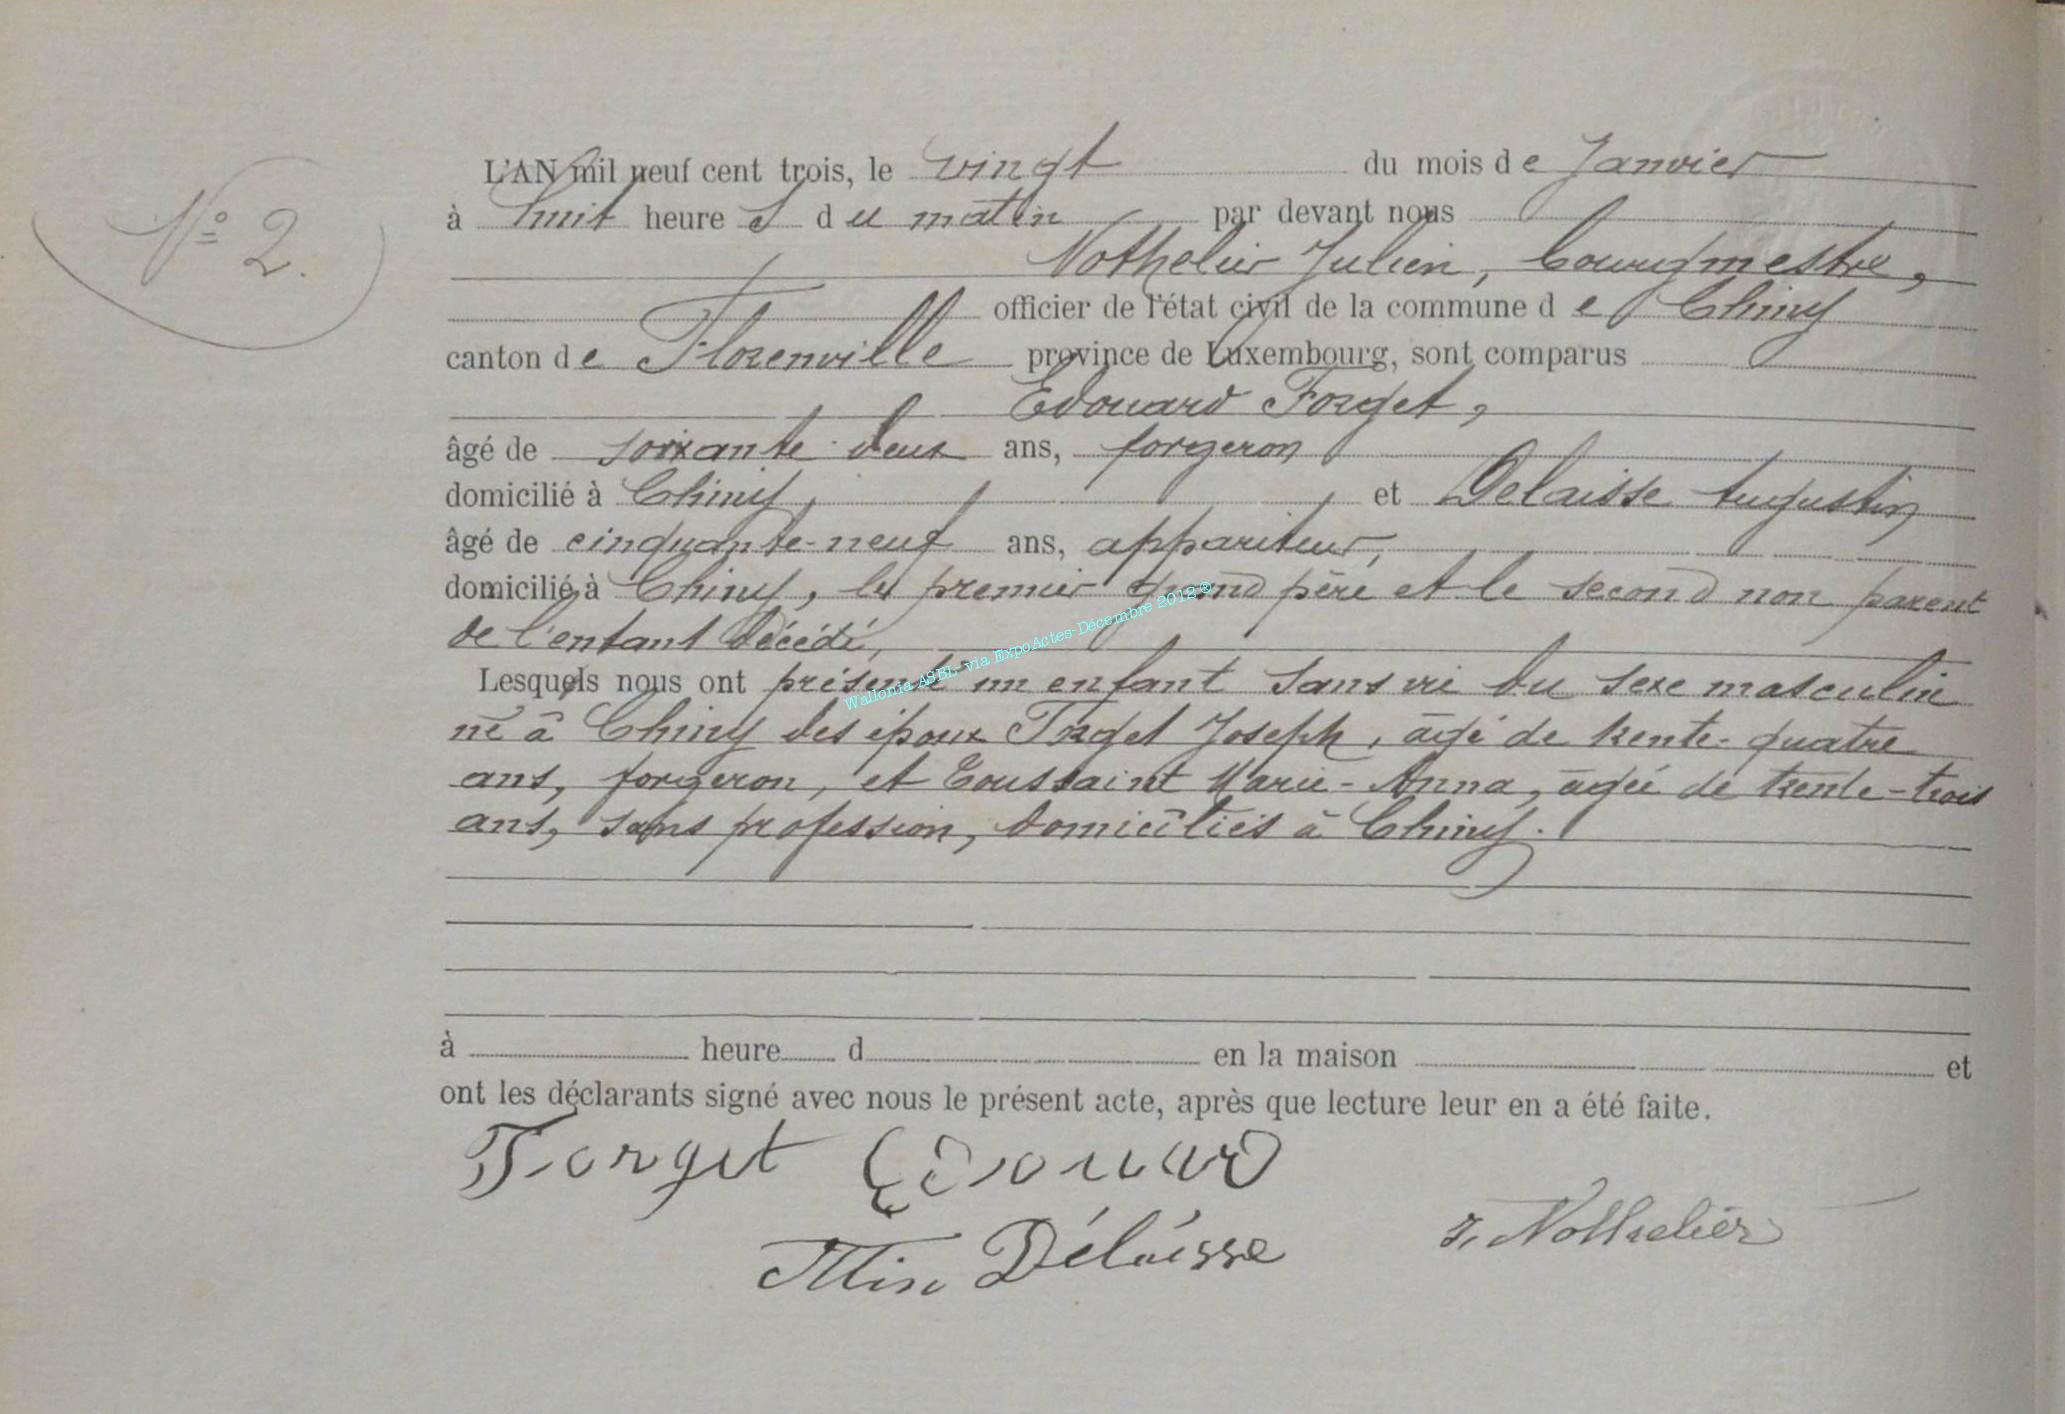 N° 2.
L'AN mil neuf cent trois, le vingt du mois de Janvier
à huit heures du matin par devant nous
Nothelier Julien, bourgmestre,
officier de l'état civil de la commune de Chiny
canton de Florenville province de Luxembourg, sont comparus
Edouard Forget,
âgé de soixante-deux ans, forgeron
domicilié à Chiny, et Delaisse Augustin
âgé de cinquante-neuf ans, appariteur,
domicilié à Chiny, le premier grand père et le second non parent
de l'enfant décédé,
Lesquels nous ont présenté un enfant sans vie du sexe masculin
né à Chiny des époux Forget Joseph, âgé de trente-quatre
ans, forgeron, et Toussaint Marie-Anna, âgée de trente-trois
ans, sans profession, domiciliés à Chiny.
à heure d en la maison et
ont les déclarants signé avec nous le présent acte, après que lecture leur en a été faite.
Forget Edouard
Délaisse J. Nothelier
Wallonia ASBL-via ExpoActes-Décembre 2012®